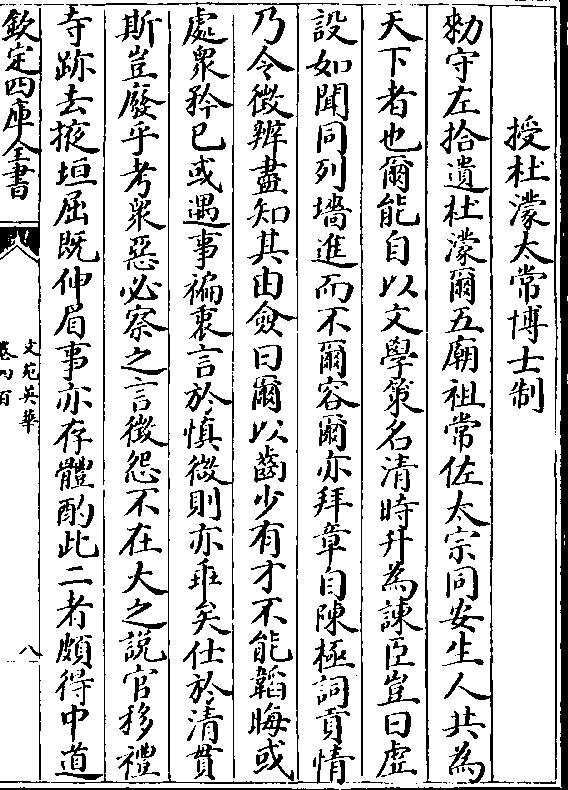 授杜濛太常博士制
勅守左拾遺杜濛爾五廟祖常佐太宗同安生人共為
天下者也爾能自以文學策名清時升為諫臣豈曰虚
設如聞同列墻進而不爾容爾亦拜章自陳極詞貢情
乃令徴辨盡知其由僉曰爾以齒少有才不能韜晦或
處衆矜已或遇事褊衷言於慎微則亦乖矣仕於清貫
斯豈廢乎考衆惡必察之言徴怨不在大之說官移禮
寺跡去掖垣屈既伸眉事亦存體酌此二者頗得中道
欽定四庫全書
文苑英華
卷四百
八